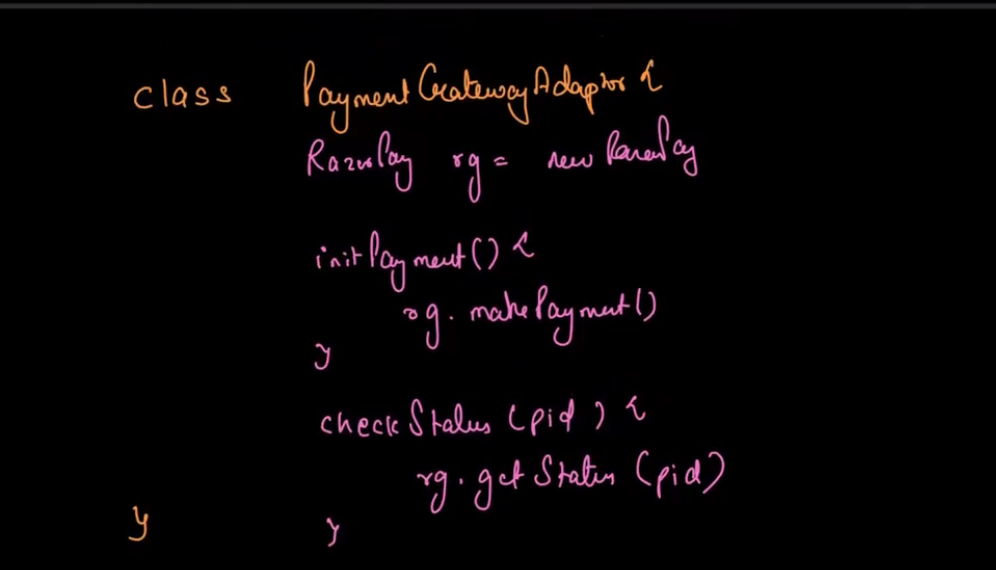 class PaymentGatewayAdaptor {
RazorPay rg = new RazorPay
initPayment() {
rg. makePayment()
}
checkStatus (pid) {
rg. getStatus (pid)
}
}